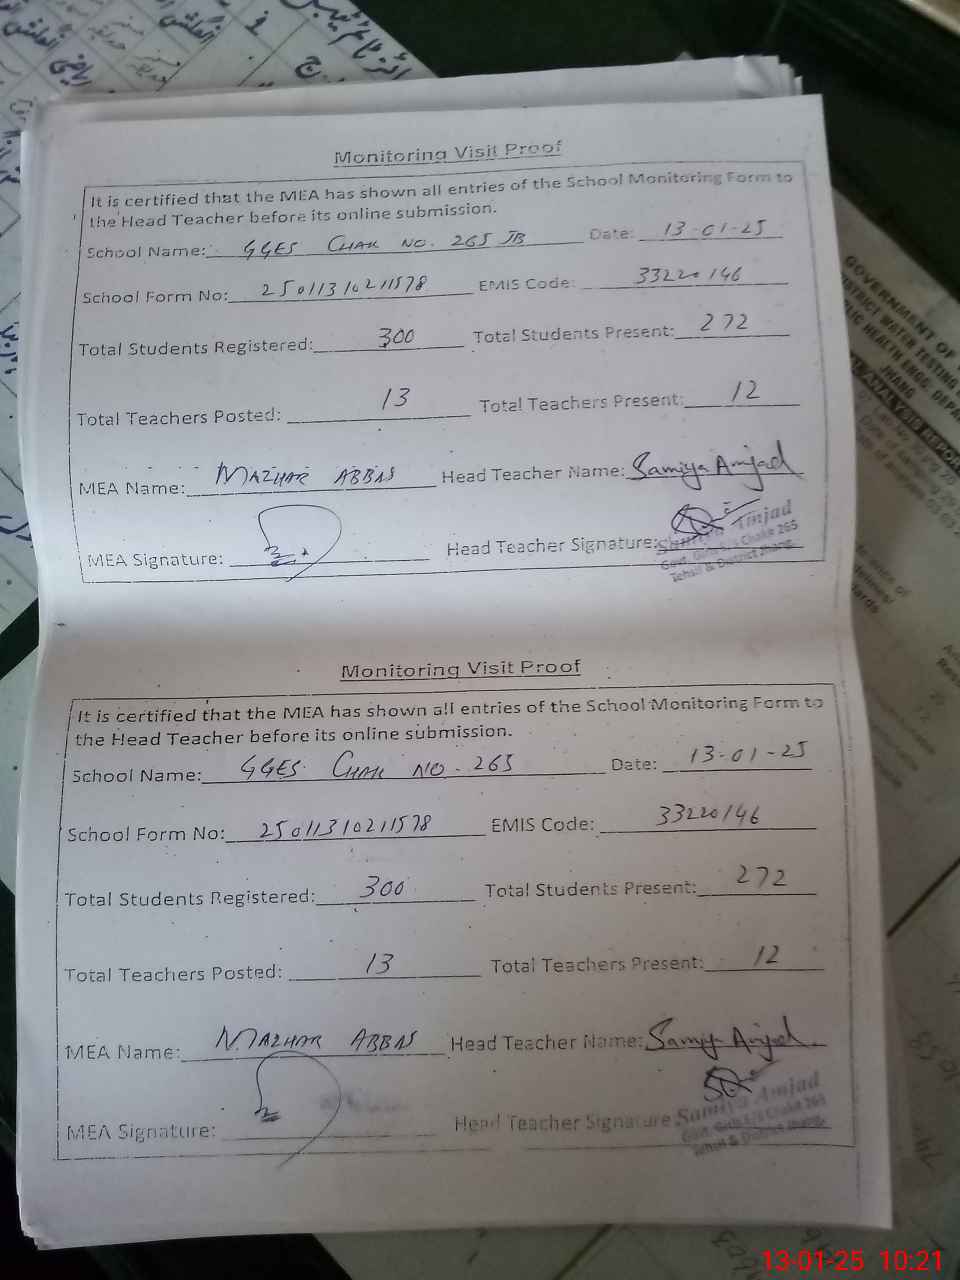 Monitoring Visit Proof
It is certified that the MEA has shown all entries of the School Monitoring Form to
the Head Teacher before its online submission.
School Name: GGES CHAK NO. 265 JB Date: 13-01-25
School Form No: 25011310211578 EMIS Code: 33220146
Total Students Registered: 300 Total Students Present: 272
Total Teachers Posted: 13 Total Teachers Present: 12
MEA Name: MAZHAR ABBAS Head Teacher Name: Samiya Amjad
MEA Signature: Head Teacher Signature:
Govt. Girls E/S Chak# 265
Tehsil & District Jhang.
Monitoring Visit Proof
It is certified that the MEA has shown all entries of the School Monitoring Form to
the Head Teacher before its online submission.
School Name: GGES CHAK NO. 265 Date: 13-01-25
School Form No: 25011310211578 EMIS Code: 33220146
Total Students Registered: 300 Total Students Present: 272
Total Teachers Posted: 13 Total Teachers Present: 12
MEA Name: MAZHAR ABBAS Head Teacher Name: Samiya Amjad
MEA Signature: Head Teacher Signature
Samiya Amjad
Govt. Girls E/S Chak# 265
Tehsil & District Jhang.
GOVERNMENT OF
DISTRICT WATER TESTING
PUBLIC HEALTH ENGG. DEPA
JHANG
ANALYSIS REPOR
13-01-25 10:21